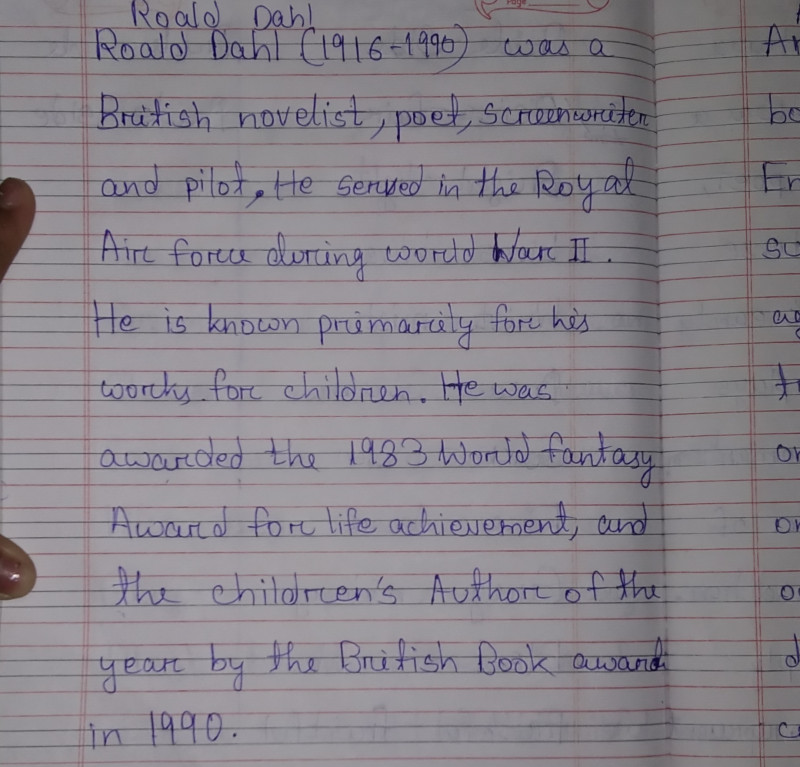 Page
Roald Dahl
Roald Dahl (1916-1990) was a
British novelist, poet, screenwriter
and pilot. He served in the Royal
Air force during world War II.
He is known primarily for his
works for children. He was
awarded the 1983 World fantasy
Award for life achievement, and
the children's Author of the
year by the British Book award
in 1990.